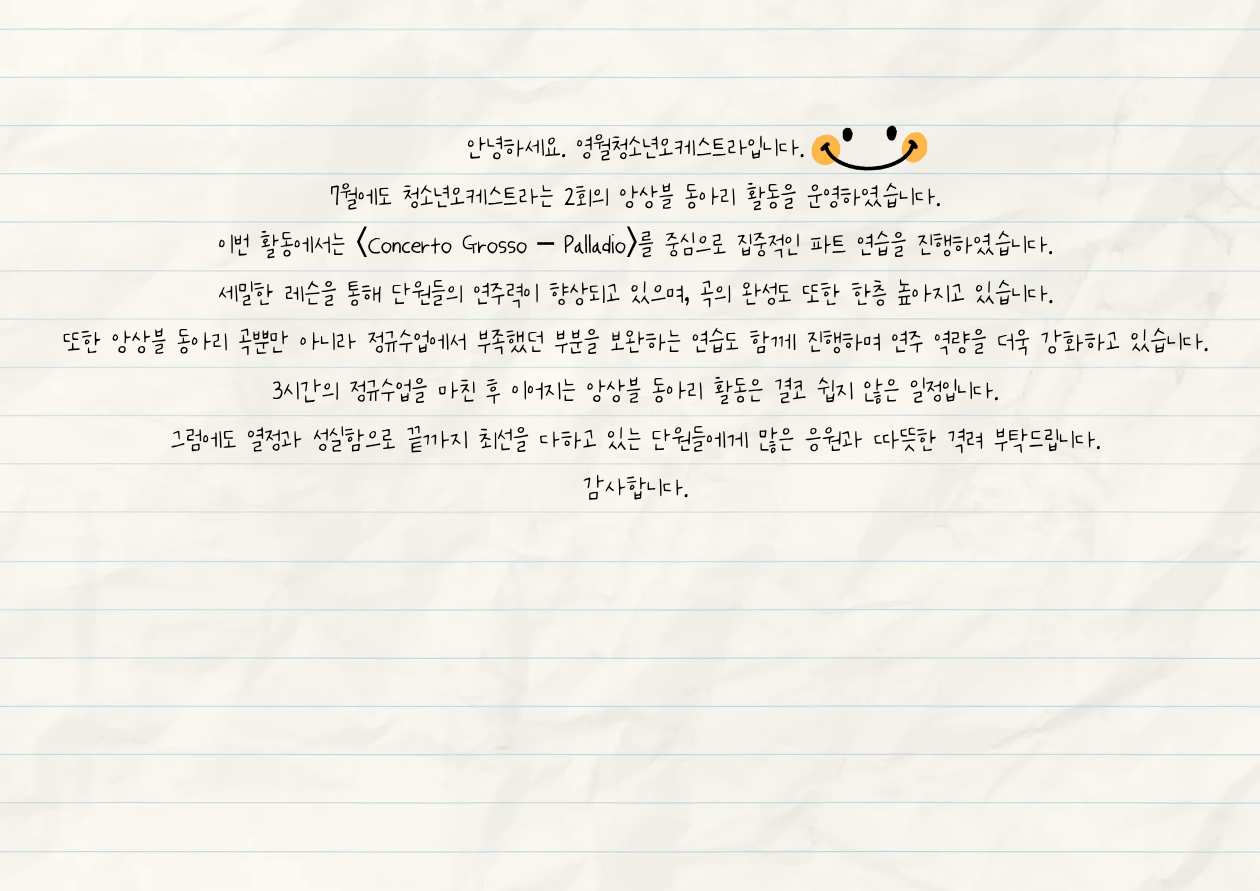 안녕하세요. 영월청소년오케스트라입니다.
7월에도 청소년오케스트라는 2회의 앙상블 동아리 활동을 운영하였습니다.
이번 활동에서는 <Concerto Grosso - Palladio>를 중심으로 집중적인 파트 연습을 진행하였습니다.
세밀한 레슨을 통해 단원들의 연주력이 향상되고 있으며, 곡의 완성도 또한 한층 높아지고 있습니다.
또한 앙상블 동아리 곡뿐만 아니라 정규수업에서 부족했던 부분을 보완하는 연습도 함께 진행하며 연주 역량을 더욱 강화하고 있습니다.
3시간의 정규수업을 마친 후 이어지는 앙상블 동아리 활동은 결코 쉽지 않은 일정입니다.
그럼에도 열정과 성실함으로 끝까지 최선을 다하고 있는 단원들에게 많은 응원과 따뜻한 격려 부탁드립니다.
감사합니다.